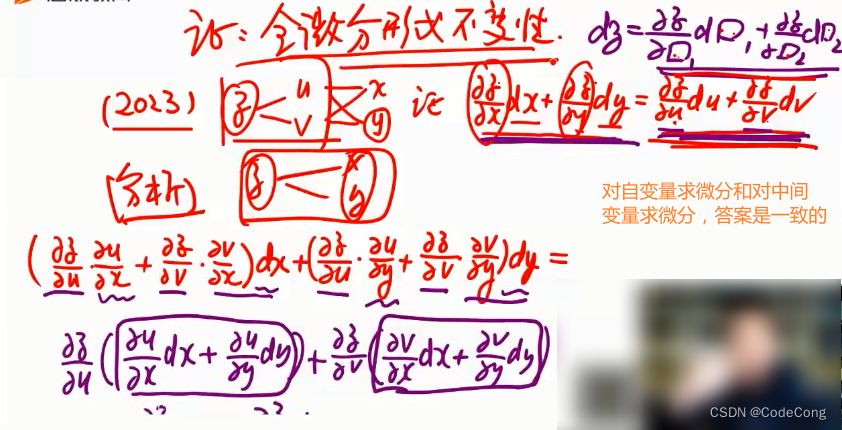 证：全微分形式不变性. dz=∂z/∂□₁ d□₁+∂z/∂□₂ d□₂
(2023) z u v x y 证 ∂z/∂x dx+∂z/∂y dy=∂z/∂u du+∂z/∂v dv
[分析] z x y
对自变量求微分和对中间
变量求微分，答案是一致的
(∂z/∂u·∂u/∂x+∂z/∂v·∂v/∂x)dx+(∂z/∂u·∂u/∂y+∂z/∂v·∂v/∂y)dy=
∂z/∂u(∂u/∂x dx+∂u/∂y dy)+∂z/∂v(∂v/∂x dx+∂v/∂y dy)
CSDN @CodeCong